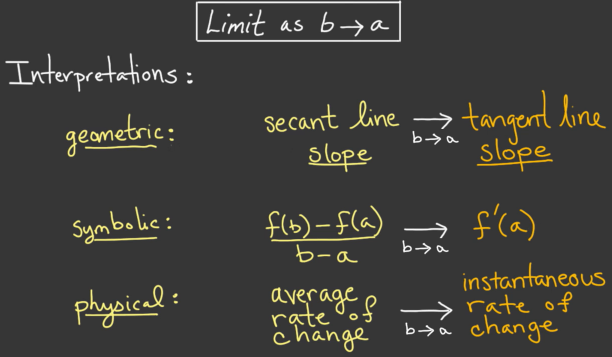 Limit as b → a
Interpretations:
geometric: secant line slope → b→a tangent line slope
symbolic: f(b) - f(a) / b - a → b→a f'(a)
physical: average rate of change → b→a instantaneous rate of change